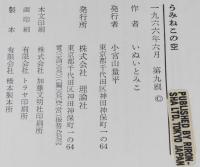 うみねこの空
一九六六年六月 第九刷 ©
作者 いぬいとみこ
発行者 小宮山量平
東京都千代田区神田神保町一の64
発行所 株式会社 理論社
東京都千代田区神田神保町一の64
本文印刷 株式会社 加藤文明社印刷所
画印刷 有限会社 トラヤ印刷所
製本 有限会社 橋本製本所
PUBLISHED BY RIRON-
SHA LTD. TOKYO JAPAN